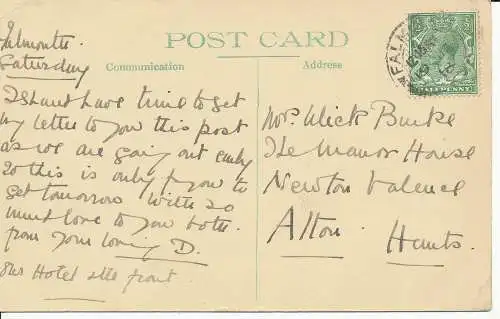 POST CARD
Communication
Address
Falmouth.
Saturday
I shant have time to get
my letter to you this post
as we are going out early
So this is only for you to
get tomorrow With so
much love to you both.
from your loving D.
Our Hotel sea front
Mrs Ulick Burke
The Manor House
Newton Valence
Alton.
Hants.
FALM
HALFPENNY